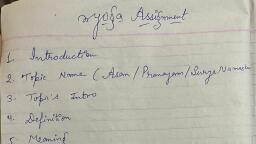 Yoga Assignment
1. Introduction
2. Topic Name (Asan / Pranayam / Surya Namask
3. Topic's Intro
4. Definition
5. Meaning